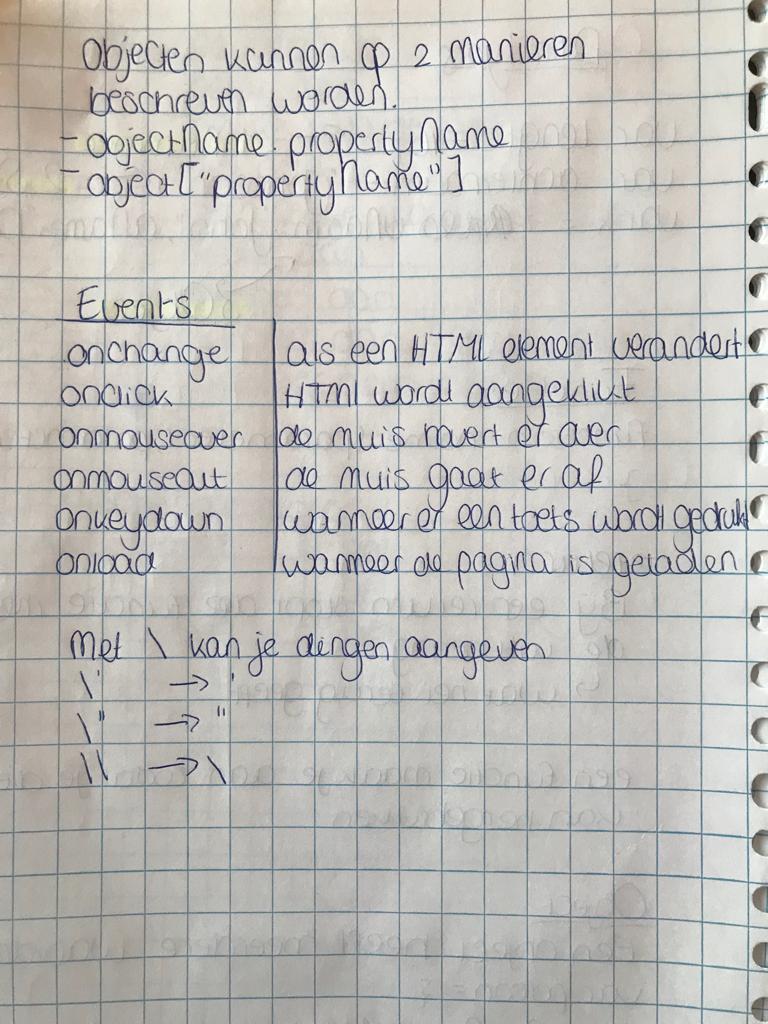 Objecten kunnen op 2 manieren
beschreven worden.
- objectName.propertyName
- object["propertyName"]
Events
onchange | als een HTML element verandert
onclick | HTML wordt aangeklikt
onmouseover | de muis hovert er over
onmouseout | de muis gaat er af
onkeydown | wanneer er een toets wordt gedrukt
onload | wanneer de pagina is geladen
Met \ kan je dingen aangeven
\' → '
\" → "
\\ → \